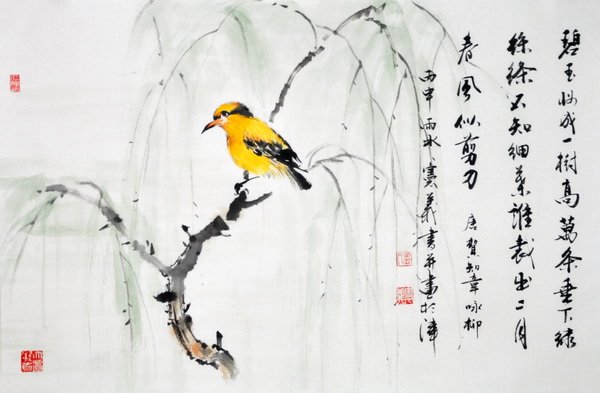 碧玉妝成一樹高萬条垂下绿
絲絛不知細葉誰裁出二月
春風似剪刀 唐賀知章咏柳
丙申雨水 義書并畫於津